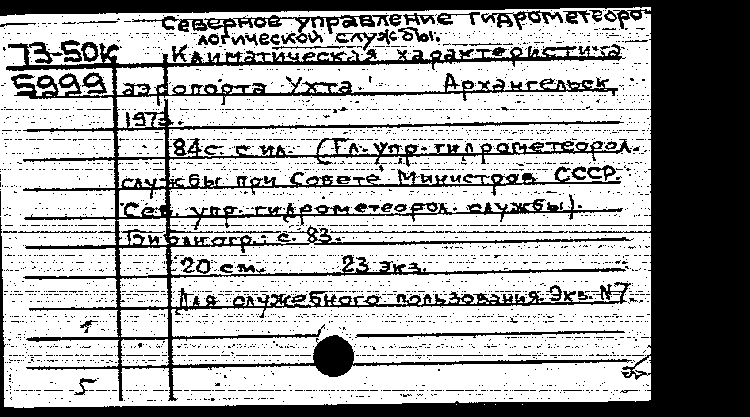 Северное управление гидрометеоро-
логической службы.
73-50к Климатическая характеристика
5999 аэропорта Ухта. Архангельск,
1973.
84с. с ил. (Гл. упр. гидрометеорол.
службы при Совете Министров СССР.
Сев. упр. гидрометеорол. службы).
Библиогр.: с. 83.
20 см. 23 экз.
Для служебного пользования. Экз. N7.
1
5